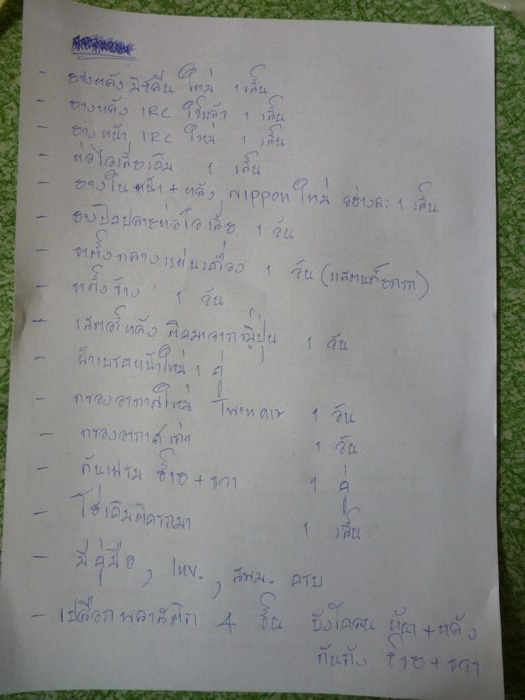 - ยางหลัง มิชลิน ใหม่ 1 เส้น
- ยางหลัง IRC ใช้แล้ว 1 เส้น
- ยางหน้า IRC ใหม่ 1 เส้น
- ท่อไอเสียเดิม 1 เส้น
- ยางใน หน้า + หลัง NIPPON ใหม่ อย่างละ 1 เส้น
- ปิดปลายท่อไอเสีย 1 อัน
- ขาตั้งกลาง 1 อัน
- ขาตั้งข้าง 1 อัน
- สเตอร์หลัง ติดมาจากญี่ปุ่น 1 อัน
- ผ้าเบรคหน้าใหม่ 1 คู่
- กรองอากาศใหม่ 1 อัน
- กรองอากาศเก่า 1 อัน
- กันเฟรม ซ้าย + ขวา 1 คู่
- โซ่เดิมติดรถมา 1 เส้น
- มีคู่มือ , , ครบ
- เปลือกพลาสติก 4 ชิ้น บังโคลน หน้า + หลัง
กันถัง ซ้าย + ขวา